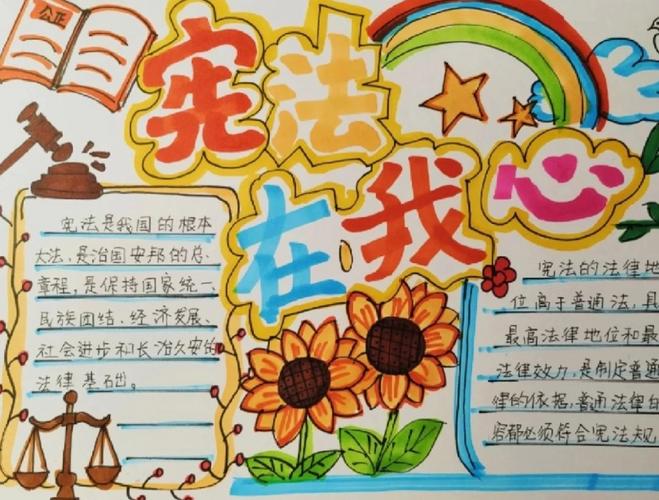 公正
宪法
在我心
宪法是我国的根本
大法,是治国安邦的总
章程,是保持国家统一、
民族团结、经济发展、
社会进步和长治久安的
法律基础。
宪法的法律地
位高于普通法,具
最高法律地位和最
法律效力,是制定普通
律的依据,普通法律的
容都必须符合宪法规